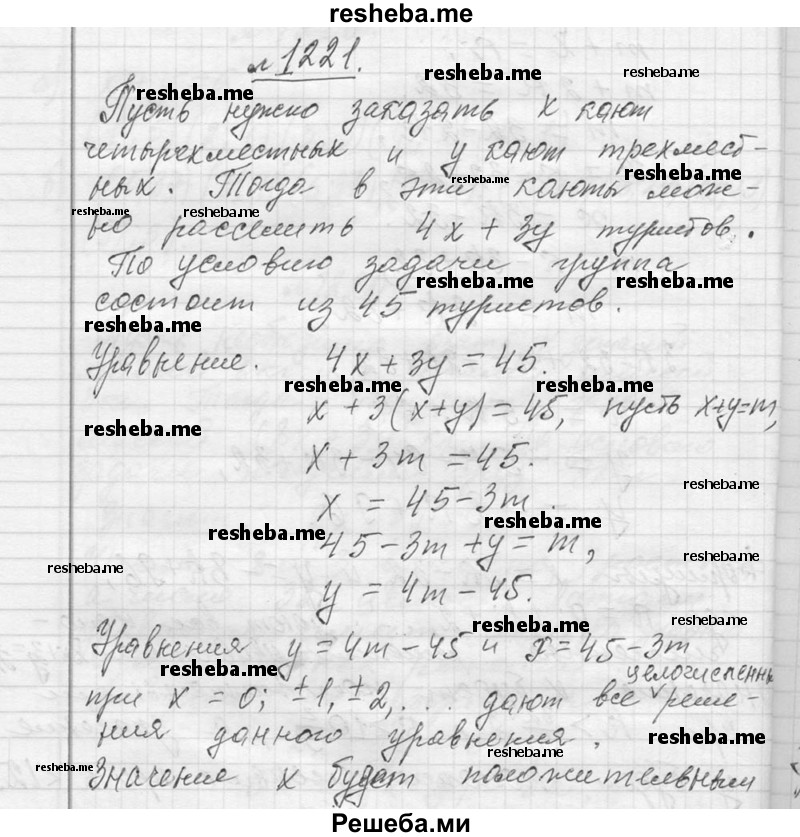 resheba.me
№1221.
resheba.me resheba.me
resheba.me
Пусть нужно заказать x кают
четырехместных и y кают трехмест-
resheba.me
ных. Тогда в эти каюты мож-
resheba.me
resheba.me resheba.me
но расселить 4x + 3y туристов.
По условию задачи группа
resheba.me resheba.me
состоит из 45 туристов.
resheba.me
Уравнение. 4x + 3y = 45.
resheba.me resheba.me
x + 3(x+y) = 45, пусть x+y=m,
resheba.me
x + 3m = 45.
resheba.me
x = 45-3m.
resheba.me
resheba.me
45-3m+y = m,
resheba.me
resheba.me
y = 4m-45.
resheba.me
resheba.me
Уравнения y = 4m-45 и x=45-3m
resheba.me
целочисленн
при x = 0; ±1, ±2, ... дают все реше-
ния данного уравнения.
resheba.me
resheba.me
resheba.me
Значение x будет положительным
Решеба.ми